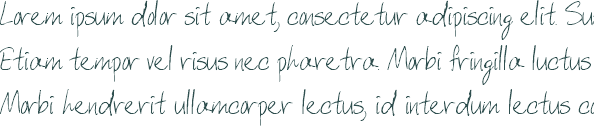 Lorem ipsum dolor sit amet, consectetur adipiscing elit. Su
Etiam tempor vel risus nec pharetra. Morbi fringilla luctus
Morbi hendrerit ullamcorper lectus, id interdum lectus co